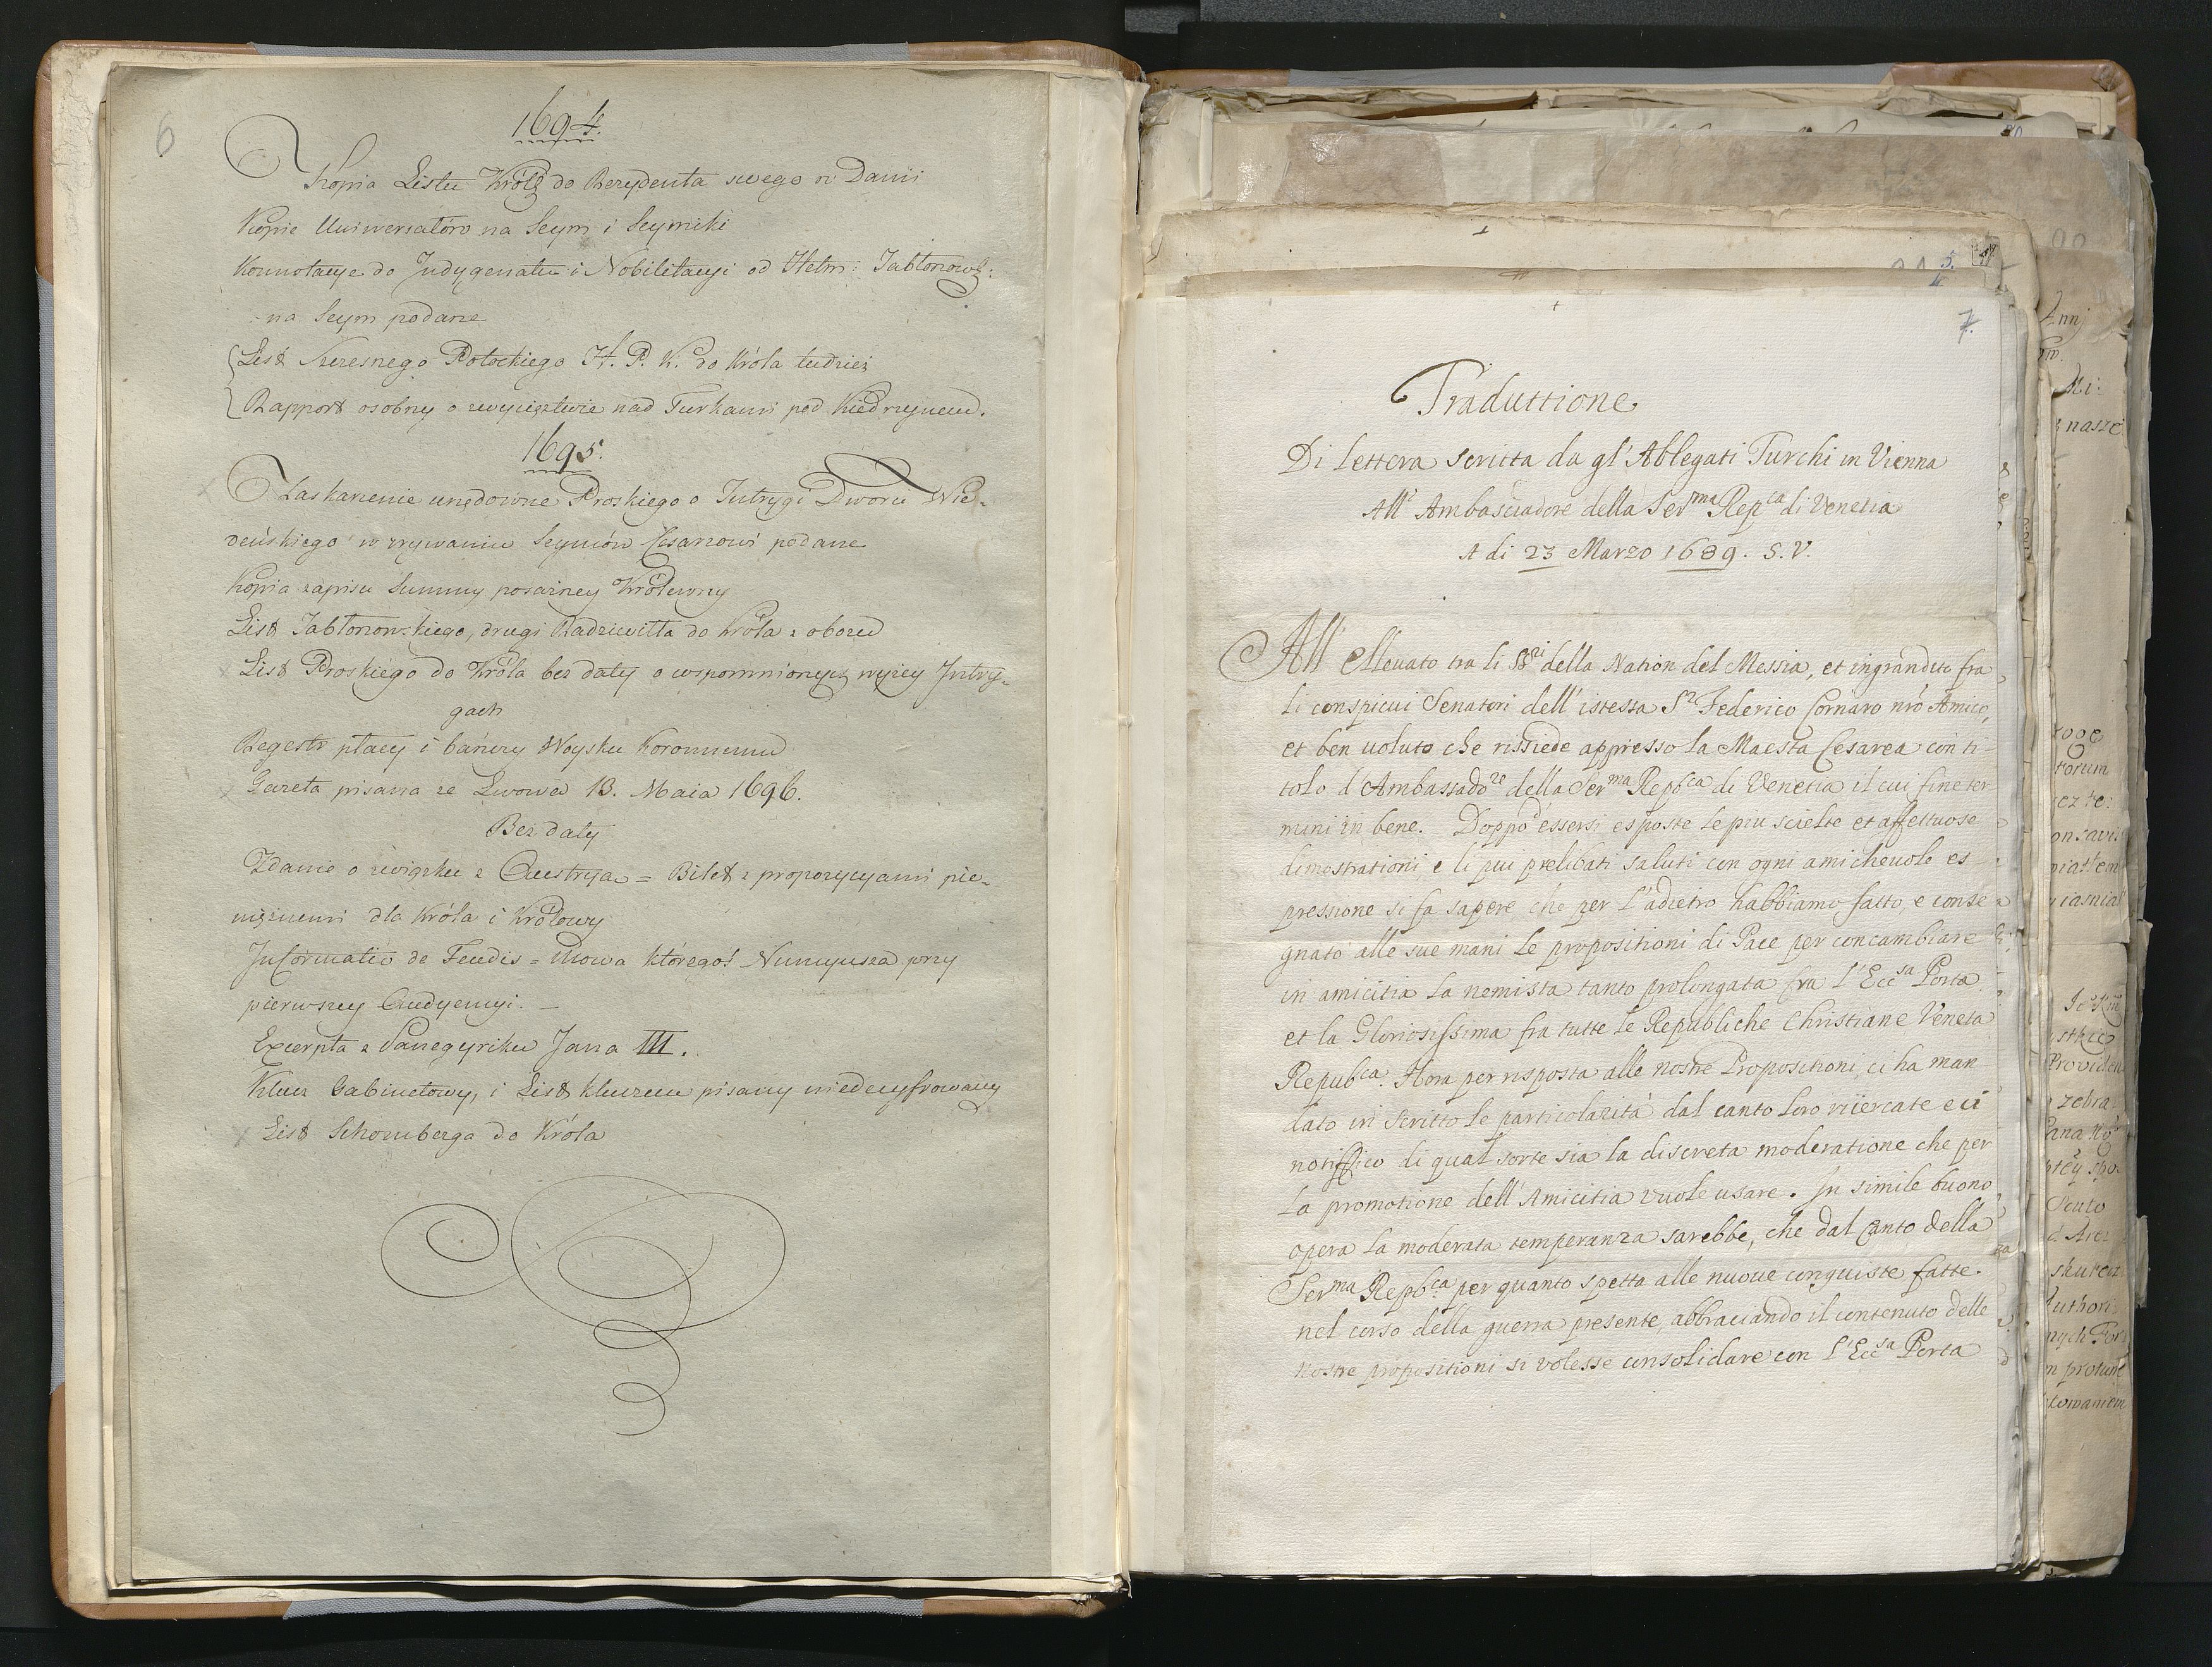 6
1694.
Kopia Listu Króla do Rezydenta swego w Danii
Kopie Uniwersałów na Seym i Seymiki
Konnotacye do Indygenatu i Nobilitacyi od Hetm: Jabłonows:
na Seym podane
List Szczesnego Potockiego H. P. K. do Króla tudzież
Rapport osobny o zwycięztwie nad Turkami pod Kiedrzynem.
1695.
Zaskarżenie urzędowne Proskiego o Intrygi Dworu Wie-
deńskiego w zrywaniu Seymów Cesarzowi podane
Kopia zapisu Summy posażney Królewny
List Jabłonowskiego, drugi Radziwiłła do Króla z obozu
List Proskiego do Króla bez daty o wspomnionych wyżey Intry-
gach
Regestr płacy i barwy Woysku Koronnemu
Gazeta pisana ze Lwowa 13. Maia 1696.
Bez daty
Zdanie o związku z Austryą = Bilet z propozycyami pie-
niężnemi dla Króla i Królowy
Informatio de Feudis = Mowa któregoś Nuncyusza przy
pierwszey Audyencyi. –
Excerpta z Panegyriku Jana III.
Klucz Gabinetowy, i List kluczem pisany niedecyfrowany
List Schomberga do Króla
7.
Traduttione
Di lettera scritta da gl' Ablegati Turchi in Vienna
All' Ambasciadore della Ser.ma Rep.ca di Venetia
A di 23 Marzo 1689. S.V.
All' Elleuato tra li SS.ri della Nation del Messia, et ingrandito fra
li conspicui Senatori dell' istessa S.r Federico Cornaro nrõ Amico,
et ben uoluto che rissiede appresso la Maesta Cesarea con ti-
tolo d'Ambassado.re della Ser.ma Repb.ca di Venetia il cui fine ter
mini in bene. Doppo d'essersi esposte le piu scielte et affettuose
dimostrationi, e li piu prelibati saluti con ogni amicheuole es-
pressione si fa sapere che per l'adietro habbiamo fatto, e conse
gnato alle sue mani le propositioni di Pace per concambiare
in amicitia la nemista tanto prolongata fra l'Ecc.sa Porta
et la Gloriosissima fra tutte le Republiche Christiane Veneta
Repub.ca. Hora per risposta alle nostre Propositioni, ci ha man
dato in scritto le particolarità dal canto loro ricercate e ci
notiffico di qual sorte sia la discreta moderatione che per
la promotione dell' Amicitia vuole usare. In simile buono
opera la moderata temperanza sarebbe, che dal canto della
Ser.ma Repb.ca per quanto spetta alle nuoue conquiste fatte.
nel corso della guerra presente, abbracciando il contenuto delle
nostre propositioni si volesse consolidare con l'Ecc.sa Porta